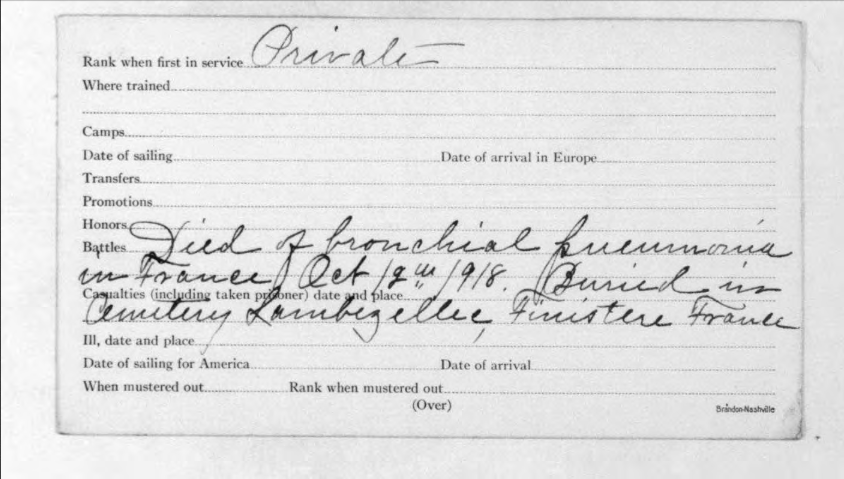 Rank when first in service Private
Where trained
Camps
Date of sailing Date of arrival in Europe
Transfers
Promotions
Honors
Battles Died of bronchial pneumonia
in France Oct 12th 1918. Buried in
Casualties (including taken prisoner) date and place
Cemetery Lambezellec, Finistere France
Ill, date and place
Date of sailing for America Date of arrival
When mustered out Rank when mustered out
(Over)
Brandon-Nashville